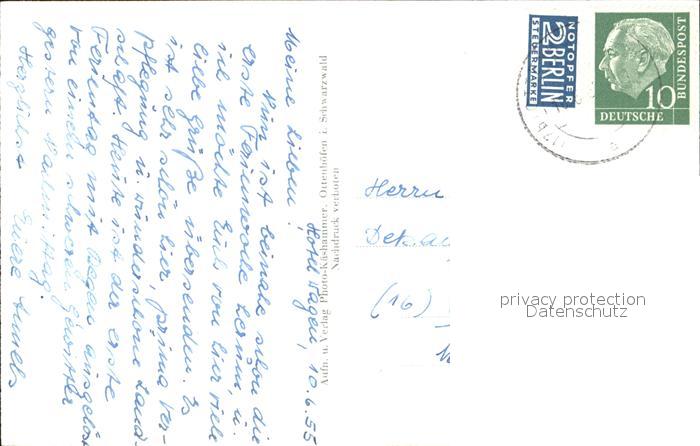 Hotel Hagen, 10.6.55
Meine Lieben!
Nun ist beinahe schon die
erste Ferienwoche herum, u.
ich möchte Euch von hier viele
liebe Grüße übersenden. Es
ist sehr schön hier, prima Ver-
pflegung u. wunderschöne Land-
schaft. Heute ist der erste
Ferientag mit Regen ausgelöst
von einem schweren Gewitter
gestern Nachmittag.
Herzlichst Eure
Aufn. u. Verlag Photo-Käshammer, Ottenhöfen i. Schwarzwald
Nachdruck verboten
NOTOPFER
2 BERLIN
STEUERMARKE
10
DEUTSCHE
BUNDESPOST
Herrn
(16)
privacy protection
Datenschutz